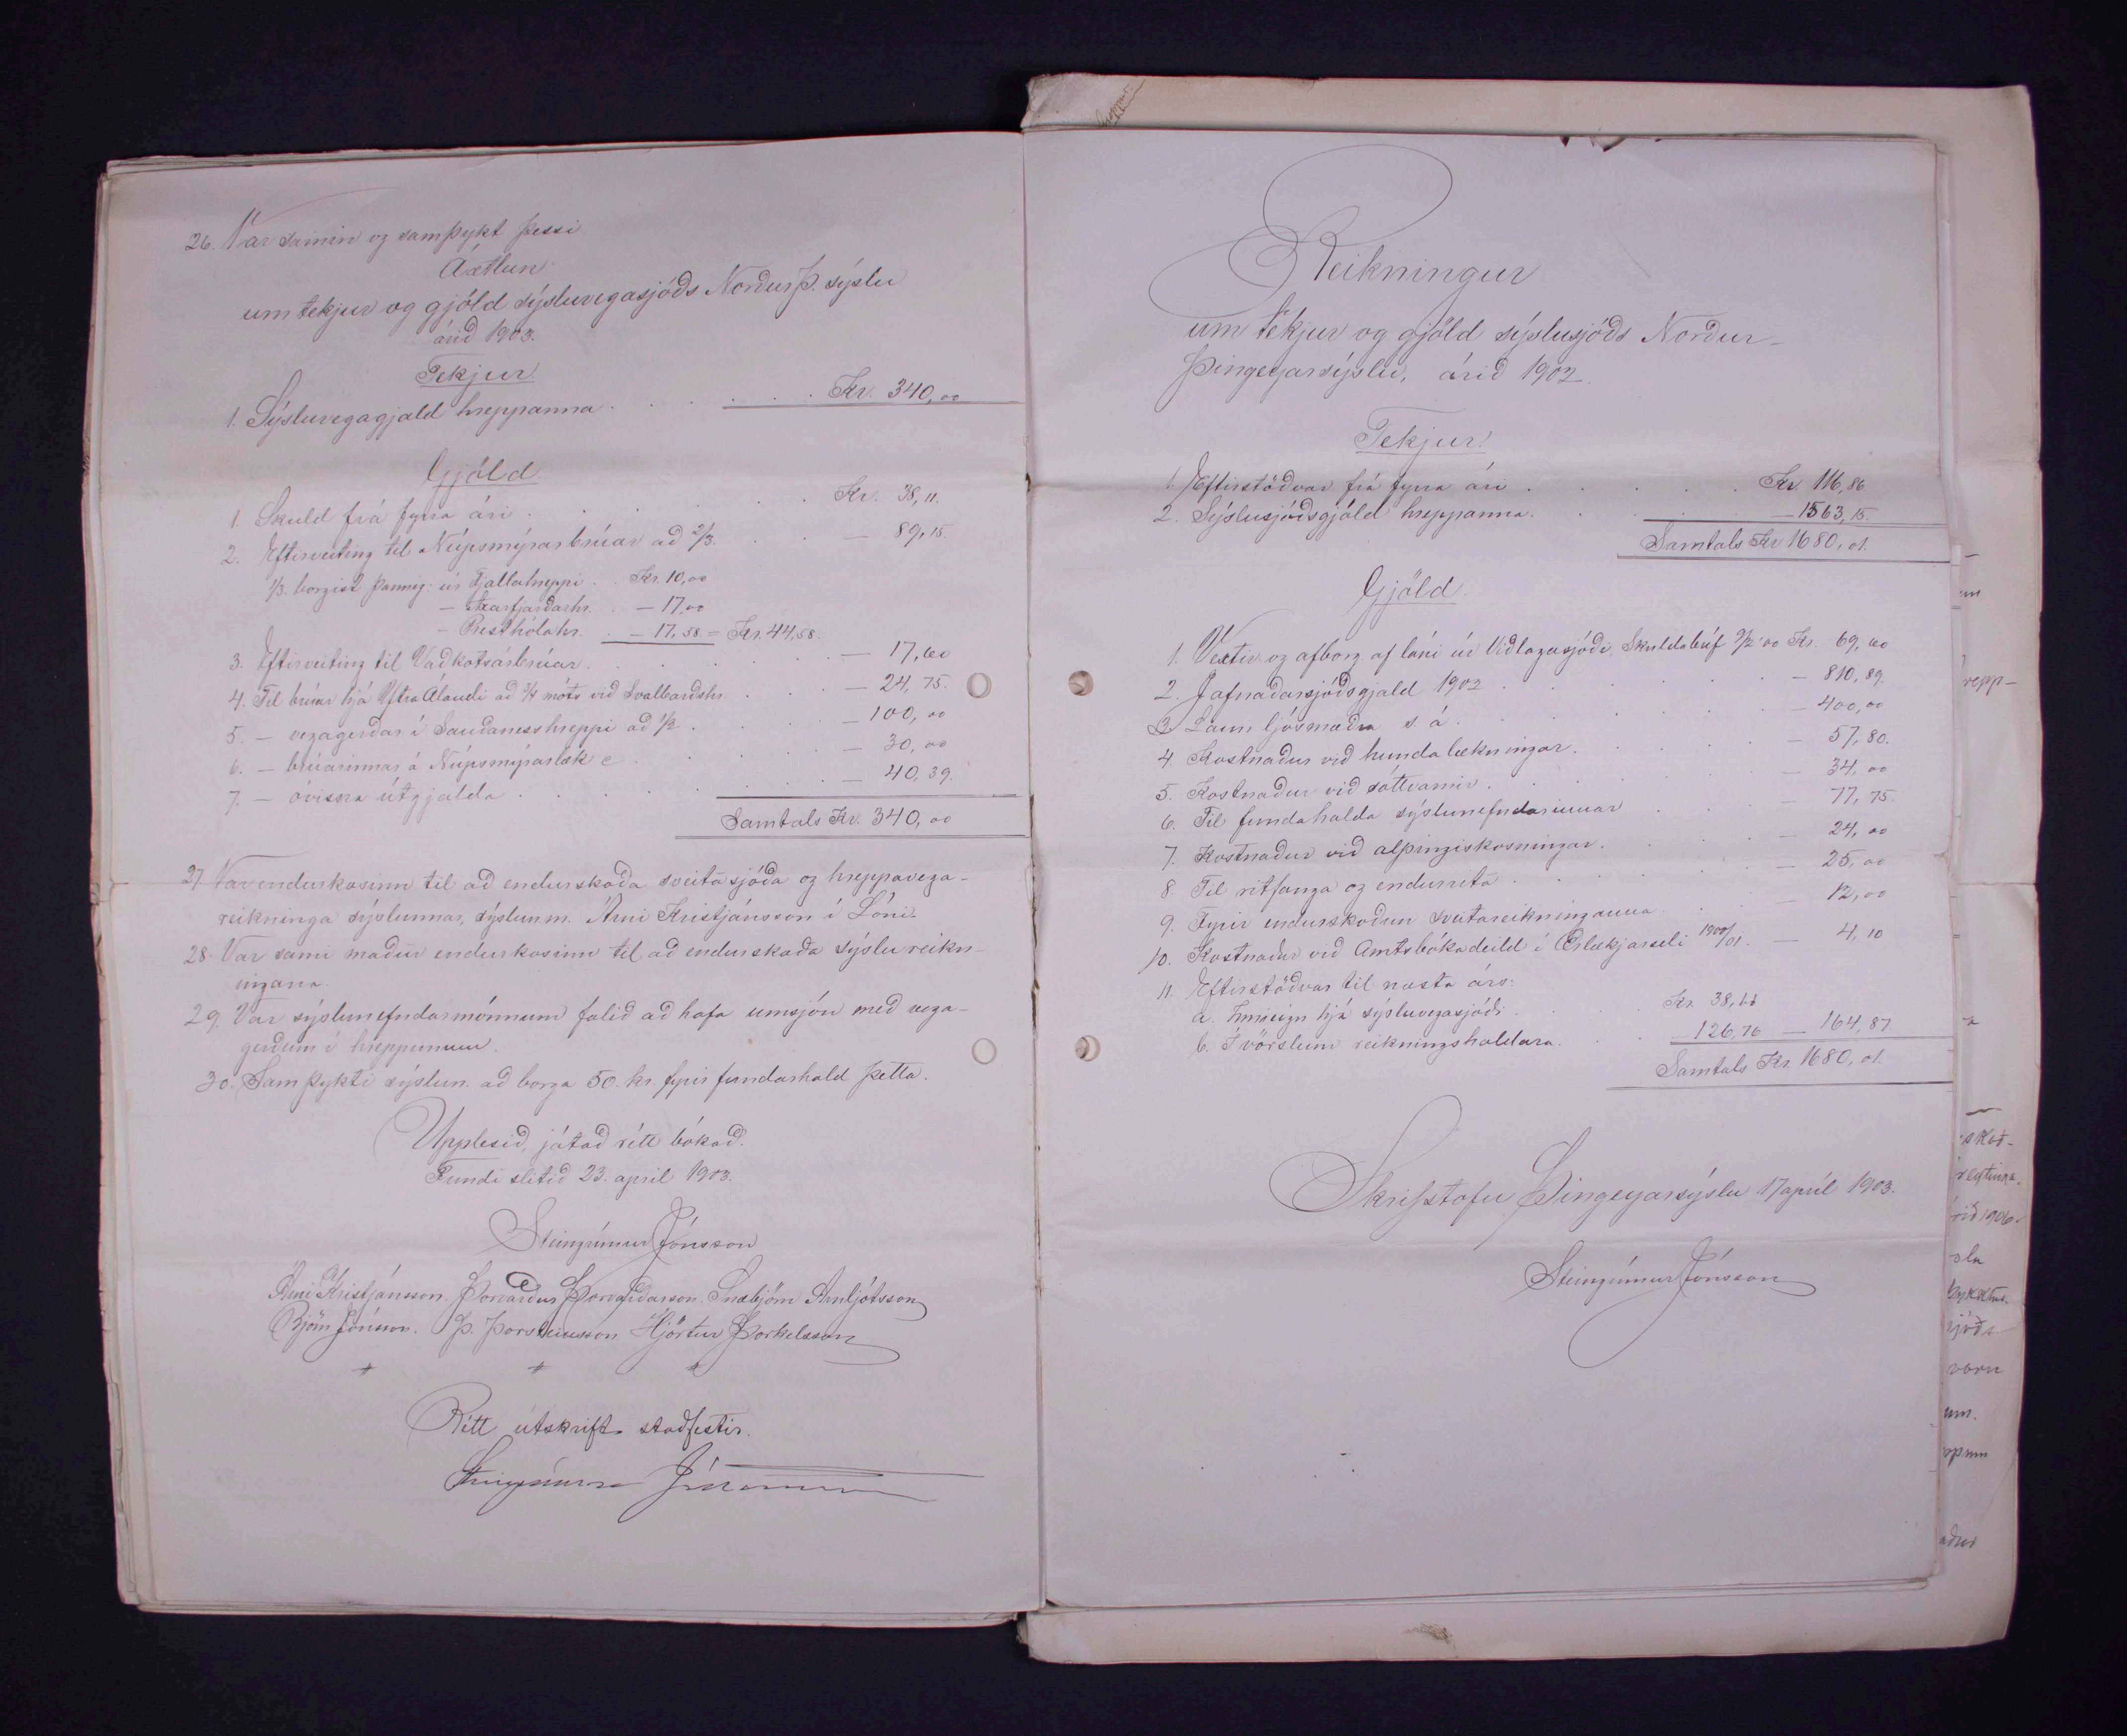 26. Var samin og samþykt þessi
Áætlun
um tekjur og gjöld sýsluvegasjóðs Norður Þ. sýslu
árið 1903.
Tekjur.
1. Sýsluvegagjald hreppanna . . . . . . Kr. 340,00
Gjöld
1. Skuld frá fyrra ári . . . . . . Kr. 38,11.
2. Eftirveiting til Núpsmýrarbrúar að 2/3. . . — 89,15.
1/3. borgist þannig: úr Fjallahreppi . . Kr. 10,00
— Axarfjarðarhr. . — 17,00
— Presthólahr. . — 17,58. = Kr. 44,58.
3. Eftirveiting til Vaðkotsárbrúar . . . . . . — 17,60
4. Til brúar hjá Ytra Álandi að 3/4 móts við Svalbarðshr. . . . — 24,75.
5. — vegagerðar í Sauðanesshreppi að 1/2 . . . . — 100,00
6. — brúarinnar á Núpsmýrarlæk . . . . — 30,00
7. — óvissra útgjalda . . . . . . . — 40,39.
Samtals Kr. 340,00
27. Var endurkosinn til að endurskoða sveitasjóða og hreppavega-
reikninga sýslunnar, sýslunm. Árni Kristjánsson í Lóni.
28. Var sami maður endurkosinn til að endurskoða sýslureikn-
ingana.
29. Var sýslunefndarmönnum falið að hafa umsjón með vega-
gerðum í hreppunum.
30. Samþykti sýslun. að borga 50. kr. fyrir fundarhald þetta.
Upplesið, játað rétt bókað.
Fundi slitið 23. apríl 1903.
Steingrímur Jónsson
Árni Kristjánsson. Þorvarður Þorvarðarson. Snæbjörn Arnljótsson
Björn Jónsson. Þ. Þorsteinsson Hjörtur Þorkelsson
Rétt útskrift staðfestir.
Steingrímur Jónsson
Reikningur
um tekjur og gjöld sýslusjóðs Norður-
Þingeyjarsýslu, árið 1902.
Tekjur:
1. Eftirstöðvar frá fyrra ári . . . . . Kr. 116,86
2. Sýslusjóðsgjöld hreppanna . . . . — 1563,15.
Samtals Kr 1680,01.
Gjöld.
1. Vextir og afborg. af láni úr Viðlagasjóði, Skuldabréf 9/2 '00 Kr. 69,60
2. Jafnaðarsjóðsgjald 1902 . . . . . . — 810,89.
3. Laun ljósmæðra s. á. . . . . . . — 400,00
4. Kostnaður við hundalækningar . . . . . — 57,80.
5. Kostnaður við sóttvarnir . . . . . . — 34,00
6. Til fundahalda sýslunefndarinnar . . . — 77,75.
7. Kostnaður við alþingiskosningar . . . . — 24,00
8. Til ritfanga og endurrita . . . . . — 25,00
9. Fyrir endurskoðun sveitareikninganna . . . — 12,00
10. Kostnaður við Amtsbókadeild í Ærlækjarseli 1900/01. — 4,10
11. Eftirstöðvar til næsta árs:
a. Inneign hjá sýsluvegasjóði . . . Kr. 38,11
b. Í vörslum reikningshaldara . . . 126,76 — 164,87
Samtals Kr. 1680,01.
Skrifstofu Þingeyjarsýslu 17 apríl 1903.
Steingrímur Jónsson